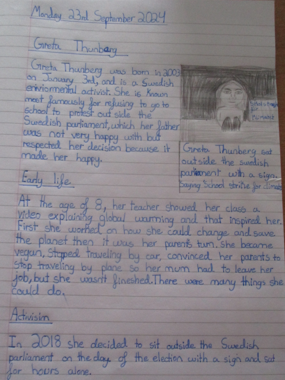 Monday 23rd September 2024
Greta Thunberg
Greta Thunberg was born is 2003
on January 3rd, and is a swedish
enviromental activist. She is known
most famously for refusing to go to
school to protest out side the
Swedish parliament, which her father
was not very happy with but
respected her decision because it
made her happy.
Greta Thunberg sat
outside the swedish
parliament with a sign
saying School strike for
Early life
At the age of 8, her teacher showed her class a
video explaining global warming and that inspired her.
First she worked on how she could change and save
the planet then it was her parents turn. She became
vegan, stopped traveling by car, convinced her parents to
stop traveling by plane so her mum had to leave her
job, but she wasn't finished. There were many things she
could do.
Activism
In 2018 she decided to sit outside the Swedish
parliament on the day of the election with a sign and sat
for hours alone.